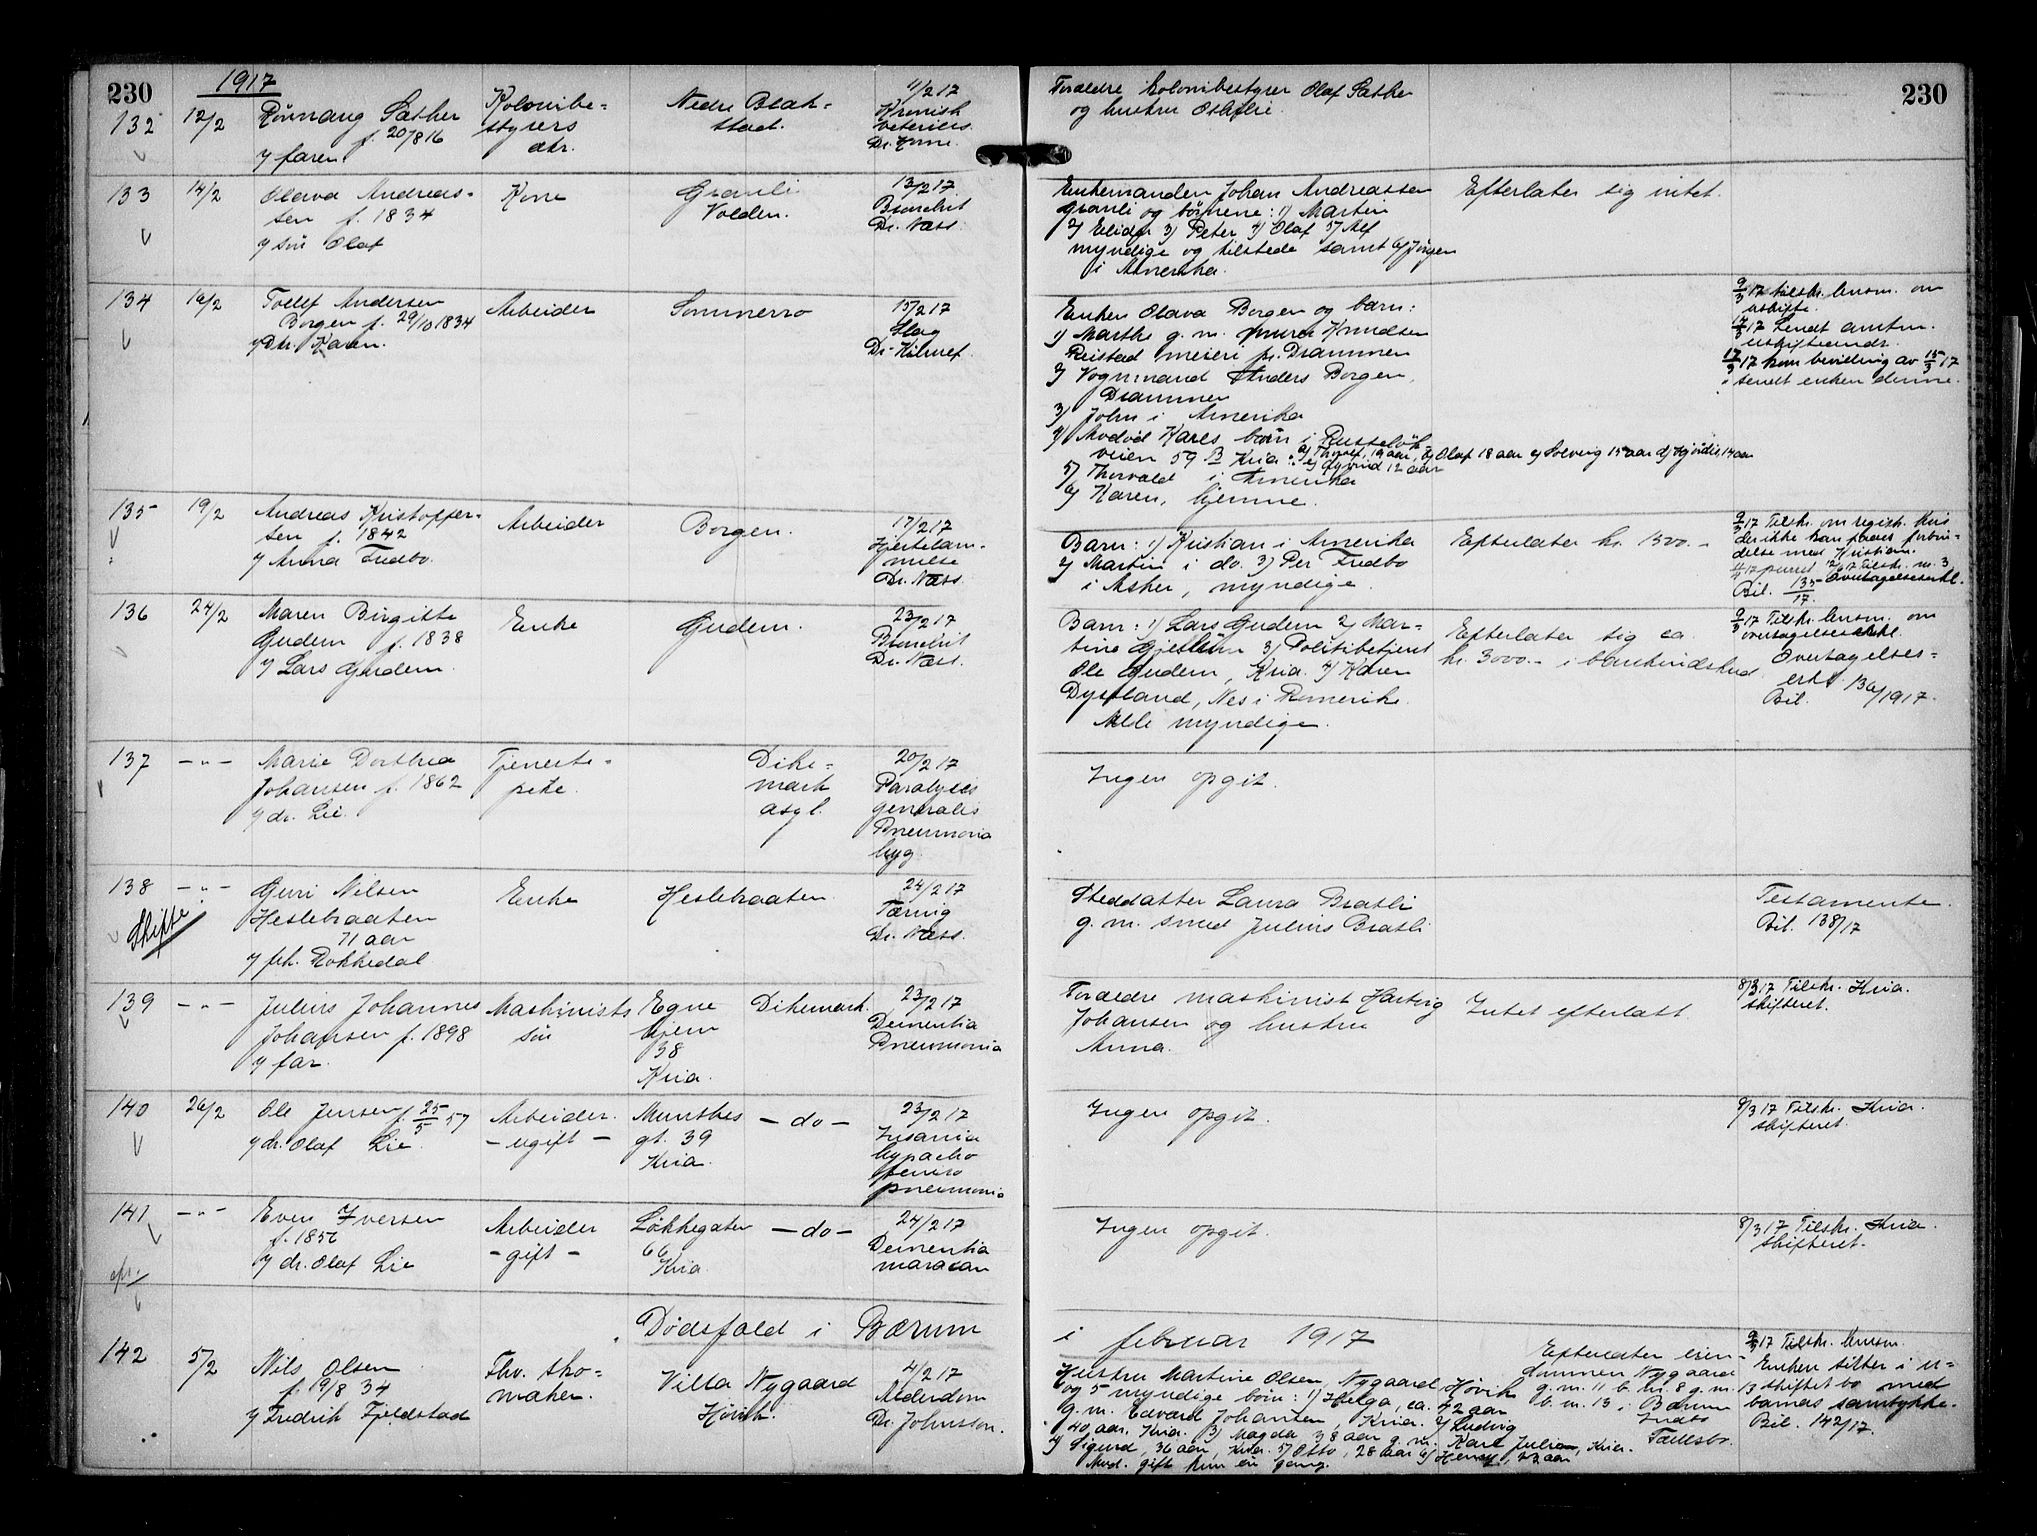 230
1917
132
12/2
Rønnaug Sæther
f. 20/8 16
v/ faren
Kolonibe-
styrers
dtr.
Nedre Blak-
stad.
11/2 17
Kronisk
Dr. Horne.
Forældre kolonibestyrer Olaf Sæther
og hustru
230
133
14/2
Olava Andreas-
sen f. 1834
v/ søn Olaf
Kone
Granli
Volden.
13/2 17
Bronchit
Dr. Næss.
Enkemanden Johan Andreassen
Granli og børnene: 1) Martin
2) Elidor 3) Peter 4) Olaf 5) Alf
myndige og tilstede samt 6) Jørgen
i Amerika.
Efterlater sig intet.
134
16/2
Tollef Andersen
Borgen f. 29/10 1834
v/ Dtr. Karen.
Arbeider
Sommerro
15/2 17
Slag
Dr.
Enken Olava Borgen og barn:
1) Marthe g. m. Knudsen
Reistad meieri pr. Drammen
2) Vognmand Anders Borgen,
Drammen
3) John i Amerika
4) Avdød Karls børn i Russeløk-
veien 59 B Kria: a) Thorolf, 19 aar, b) Olaf 18 aar c) Solveig 15 aar d) Hjørdis, 14 aar
e) Øyvind 12 aar
5) Thorvald i Amerika
6) Karen, hjemme.
9/3 17 tilskr. lensm. om
uskifte.
14/3 17 Sendt amtm.
uskifteandr.
17/3 17 kom bevilling av 15/3 17
sendt enken denne.
135
19/2
Andreas Kristoffer-
sen f. 1842
v/ Anna Fredbo.
Arbeider
Borgen.
17/2 17
Hjertelam-
melse
Dr. Næss.
Barn: 1) Kristian i Amerika
2) Martin i do. 3) Per Fredbo
i Asker, myndige.
Efterlater kr. 1300.-
9/3 17 Tilskr. om registr. hvis
der ikke kan faaes forbin-
delse med Kristian.
Overtagelseserkl.
Bil. 135/17.
136
24/2
Maren Birgitte
Gudem f. 1838
v/ Lars Gudem.
Enke
Gudem.
23/2 17
Bronchit
Dr. Næss.
Barn: 1) Lars Gudem 2) Mar-
tine 3) Politibetjent
Ole Gudem, Kria. 4) Karen
Dystland, Nes i Romerike.
Alle myndige.
Efterlater sig ca.
kr. 3000.- i bankindskud
9/3 17 Tilskr. lensm. om
overtagelseserkl.
Overtagelses-
erkl.
Bil. 136/1917.
137
— " —
Marie Dorthea
Johansen f. 1862
v/ dr. Lie.
Tjeneste-
pike.
Dike-
mark
asyl.
20/2 17
Paralysis
generalis
Pneumonia
hyg.
Ingen opgit.
138
Skifte
— " —
Guri Nilsen
Heslebraaten
71 aar
v/ fhv. Rokkedal
Enke
Heslebraaten
24/2 17
Tæring
Dr. Næss.
Steddatter Laura Bratli
g. m. smed Julius Bratli
Testamente.
Bil. 138/17
139
— " —
Julius Johannes
Johansen f. 1898
v/ far.
Maskinists
søn
Egne
hjem
38
Kria.
Dikemark.
23/2 17
Dementia
Pneumonia
Forældre maskinist Hartvig
Johansen og hustru
Anna.
Intet efterlatt.
8/3 17 Tilskr. Kria.
skifteret.
140
26/2
Ole Jensen f. 25/5 57
v/ dr. Olaf Lie.
Arbeider.
- ugift -
Munthes
gt. 39
Kria.
— do —
23/2 17
Insania
pneumonia
Ingen opgit.
8/3 17 Tilskr. Kria.
skifteret.
141
— " —
Even Iversen
f. 1856
v/ dr. Olaf Lie
Arbeider
- gift -
Løkkegaten
66
Kria.
— do —
24/2 17
Dementia
Ingen opgit.
8/3 17 Tilskr. Kria.
skifteret.
Dødsfald i Bærum i februar 1917
142
5/2
Nils Olsen
f. 19/8 34
v/ Fredrik Fjeldstad
Fhv. sko-
maker.
Villa Nygaard
Høvik.
4/2 17
Alderdom
Dr. Johnsson.
Hustru Martine Olsen, Nygaard, Høvik
og 5 myndige børn: 1) Helga, ca. 42 aar
g. m. Edvard Johansen, Kria. 2) Ludvig
40 aar, Kria. 3) Magda 38 aar g. m. Karl Julian, Kria.
4) Sigurd, 36 aar, Kria. 5) Otto, 28 aar 6) Henry, 23 aar
Avd. gift kun én gang.
Efterlater eien-
dommen Nygaard
g. nr. 11 b. nr. 8 g. nr. 13
b. nr. 13 i Bærum
Indbo
Fællesbo.
9/3 17 Tilskr. lensm.
Enken sitter i u-
skiftet bo med
barnas samtykke.
Bil. 142/17.